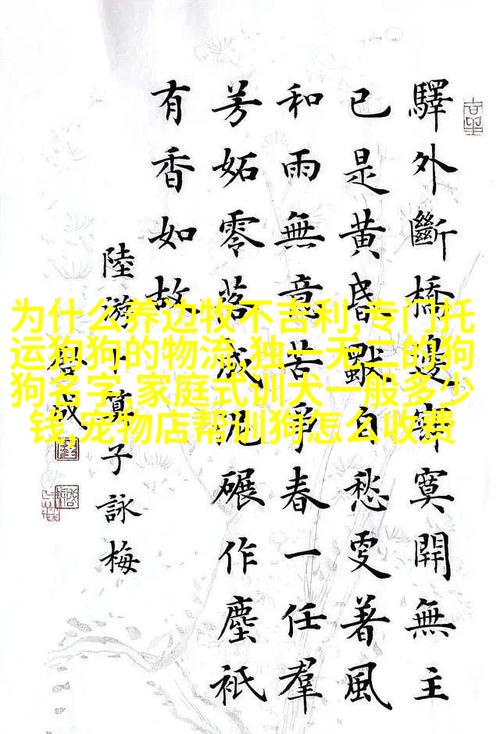 驛外斷橋邊寂寞開無主
已是黃昏獨自愁更著風
和雨無意苦爭春一任羣
芳妬零落成泥碾作塵祇
有香如故
陸游卜算子詠梅
为什么养边牧不吉利,专门托
运狗狗的物流,独一无二的狗
狗名字,家庭式训犬一般多少
钱,宠物店帮训狗怎么收费